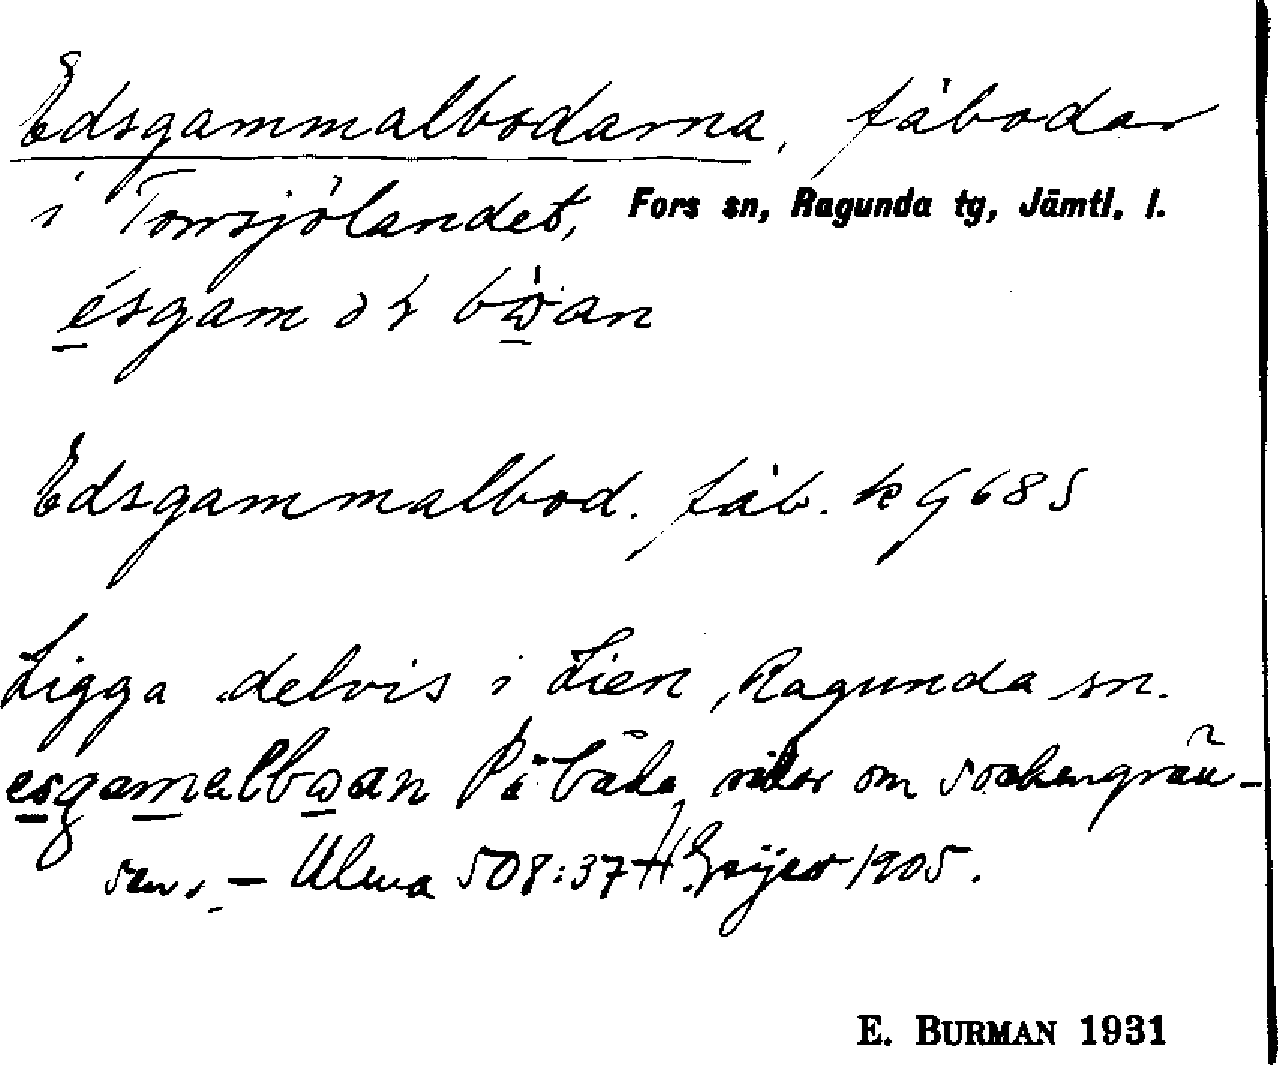 Edsgammalbodarna, fäbodar
i Torrsjölandet, Fors sn, Ragunda tg, Jämtl. l.
ésgam ban
Edsgammalbod. fäb. k G 68 S
Ligga delvis i Lien, Ragunda sn.
På båda sidor om sockengrän-
sen. - Ulma 508:37 H. Geijer 1905.
E. BURMAN 1931